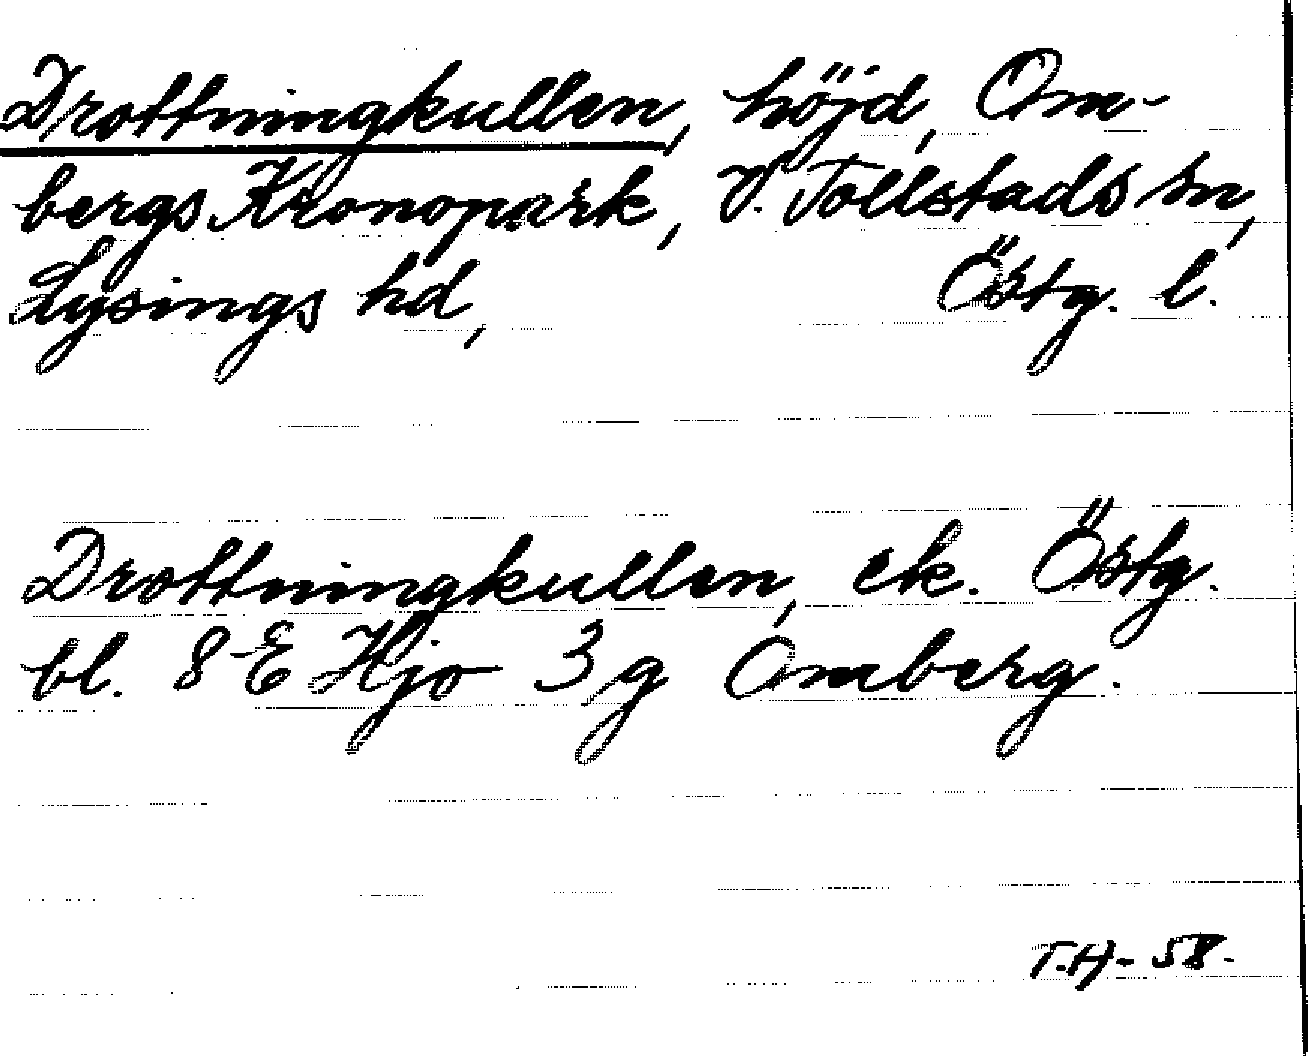 Drottningkullen, höjd, Om-
bergs Kronopark, V. Tollstads sn,
Lysings hd, Östg. l.
Drottningkullen, ek. Östg.
bl. 8 E Hjo 3g Omberg.
T.H-58.